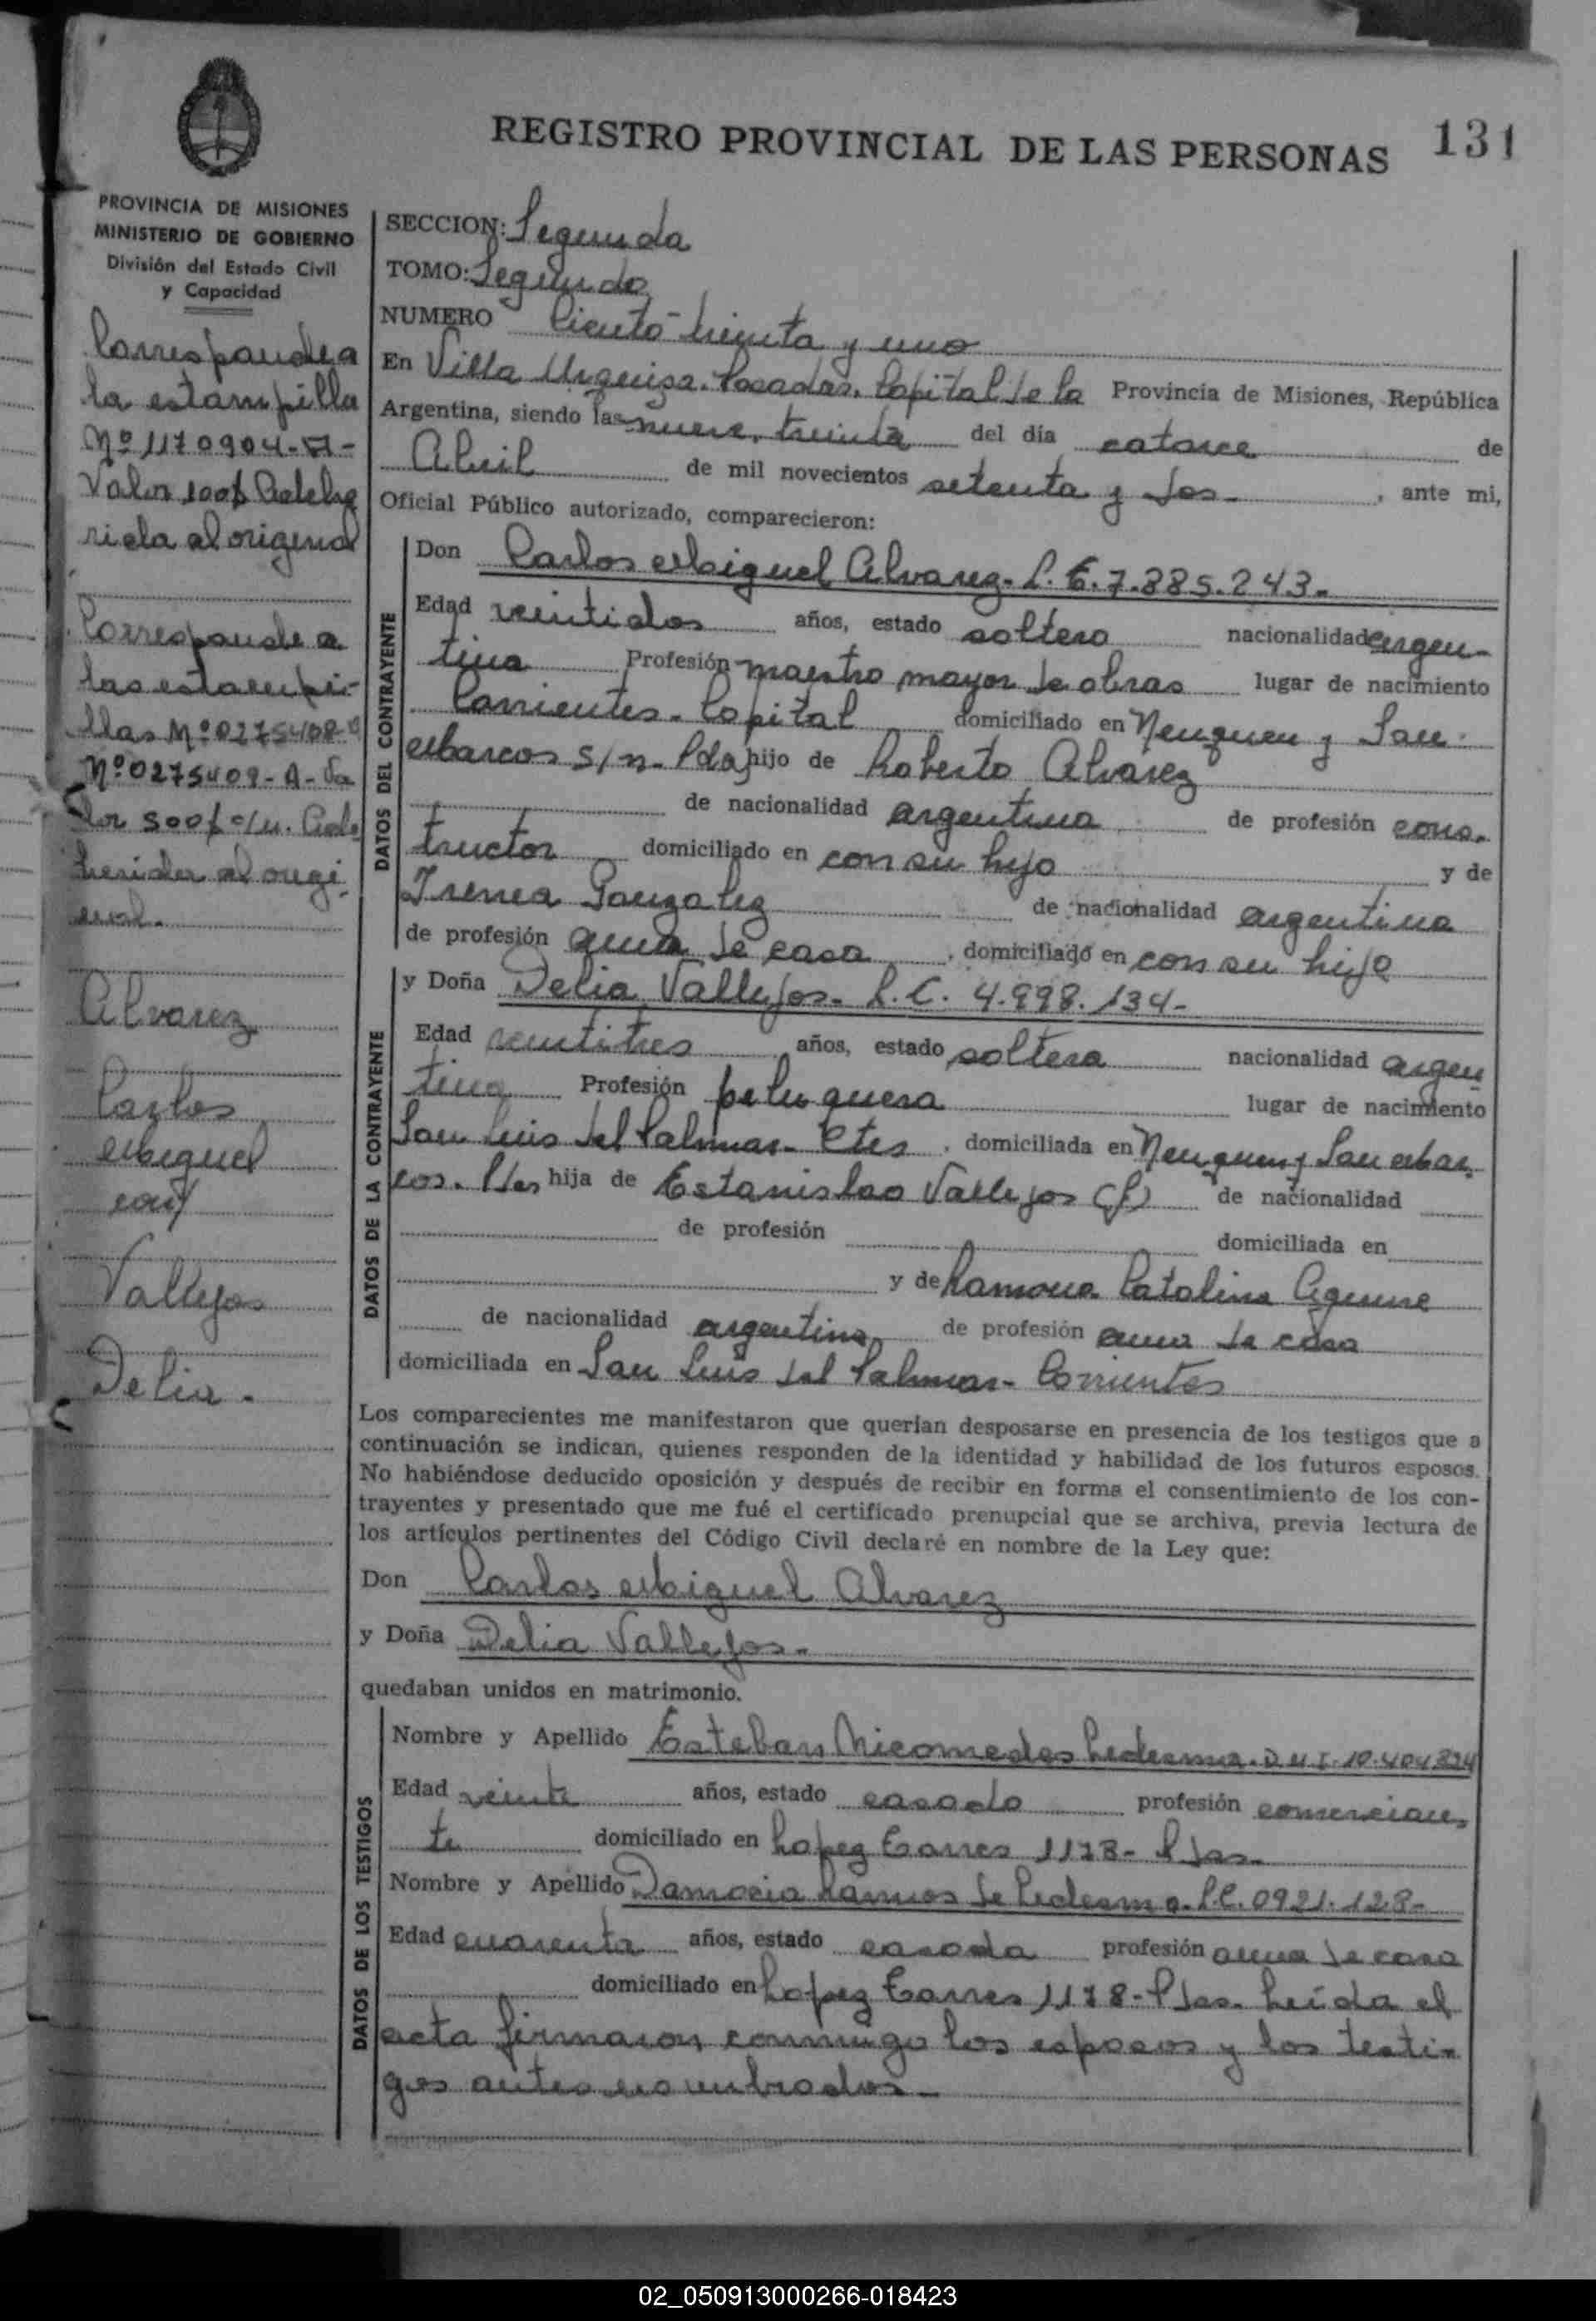 REGISTRO PROVINCIAL DE LAS PERSONAS 131
PROVINCIA DE MISIONES
MINISTERIO DE GOBIERNO
División del Estado Civil
y Capacidad
Corresponde a
la estampilla
Nº 1170904-A-
Valor 100$ Adehe
rida al original
Corresponde a
las estampi-
llas Nº 0275408-
Nº 0275409-A-Va
lor 500$ c/u. Ad
heridas al origi
nal.
Alvarez
Carlos
Miguel
con
Vallejos
Delia.
SECCION: Segunda
TOMO: Segundo
NUMERO Ciento treinta y uno
En Villa Urquiza. Posadas. Capital de la Provincia de Misiones, República
Argentina, siendo las nueve, treinta del día catorce de
Abril de mil novecientos setenta y dos- , ante mi,
Oficial Público autorizado, comparecieron:
DATOS DEL CONTRAYENTE
Don Carlos Miguel Alvarez- L. E. 7.885.243-
Edad veintidos años, estado soltero nacionalidad argen-
tina Profesión maestro mayor de obras lugar de nacimiento
Corrientes- Capital domiciliado en Neuquen y San
Marcos s/n- Pdas hijo de Roberto Alvarez
de nacionalidad argentina de profesión cons-
tructor domiciliado en con su hijo y de
Irenea Gonzalez de nacionalidad argentina
de profesión ama de casa , domiciliado en con su hijo
DATOS DE LA CONTRAYENTE
y Doña Delia Vallejos- L. C. 4.998.134-
Edad veintitres años, estado soltera nacionalidad argen
tina Profesión peluquera lugar de nacimiento
San Luis del Palmar- Ctes , domiciliada en Neuquen y San Mar
cos. Pdas hija de Estanislao Vallejos (f) de nacionalidad
de profesión domiciliada en
y de Ramona Catalina Aguirre
de nacionalidad argentina de profesión ama de casa
domiciliada en San Luis del Palmar- Corrientes
Los comparecientes me manifestaron que querían desposarse en presencia de los testigos que a
continuación se indican, quienes responden de la identidad y habilidad de los futuros esposos.
No habiéndose deducido oposición y después de recibir en forma el consentimiento de los con-
trayentes y presentado que me fué el certificado prenupcial que se archiva, previa lectura de
los artículos pertinentes del Código Civil declaré en nombre de la Ley que:
Don Carlos Miguel Alvarez
y Doña Delia Vallejos-
quedaban unidos en matrimonio.
DATOS DE LOS TESTIGOS
Nombre y Apellido Esteban Nicomedes Ledesma- D N I- 10.404.324
Edad veinte años, estado casado profesión comercian
te domiciliado en Lopez Torres 1178- Pdas-
Nombre y Apellido Ramos de Ledesma- L.C. 0921.128-
Edad cuarenta años, estado casada profesión ama de casa
domiciliado en Lopez Torres 1178- Pdas- Leída el
acta firmaron conmigo los esposos y los testi-
gos antes nombrados-
02_050913000266-018423